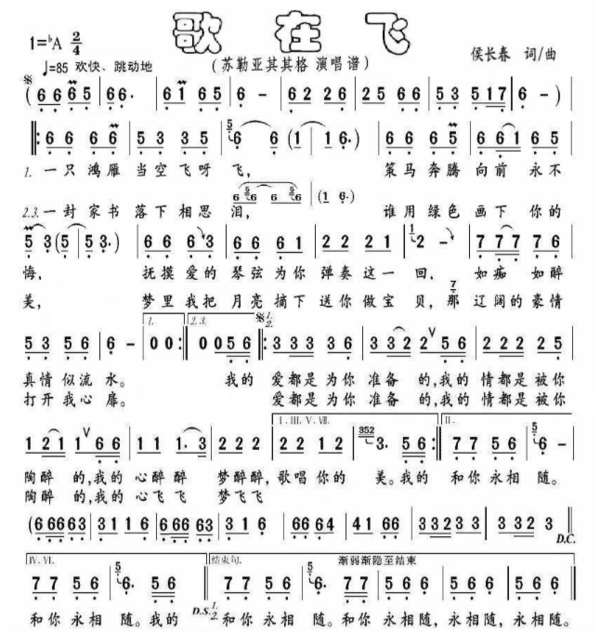 歌在飞
1=♭A 2/4
♩=85 欢快、跳动地
(苏勒亚其其格 演唱谱)
侯长春 词/曲
(6 6 6 5 | 6 6· | 6 1 6 5 | 6 – | 6 2 1 6 | 2 5 6 6 | 5 3 5 1 7 | 6 – )
6 6 6 6 | 5 3 3 5 | 6 6 (1 | 1 6·) | 6 6 6 5 | 6 6 1 6 5
1. 一只鸿雁当空飞呀飞, 策马奔腾向前永不
6 6 6 | (1 6·)
2.3. 一封家书落下相思泪, 谁用绿色画下你的
5 3 (5 | 5 3·) | 6 6 6 3 | 6 6 6 1 | 2 2 2 1 | 2 – | 7 7 7 | 7 7 6
悔, 抚摸爱的琴弦为你弹奏这一回, 如痴如醉
美, 梦里我把月亮摘下送你做宝贝,那辽阔的豪情
5 3 5 5 | 6 – | 1. 0 0 :| 2.3. 0 0 5 6 |: 3 3 3 3 6 | 3 3 2 2 5 6 | 2 2 2 2 5
真情似流水。 我的爱都是为你准备的,我的情都是被你
打开我心扉。 爱都是为你准备的,我的情都是被你
1 2 1 1 6 6 | 1 1 1· 3 | 2 2 2 | I.III.V.VII. 2 2 1 2 | 3· 5 6 :| II. 7 7 5 6 | 6 –
陶醉的,我的心醉醉梦醉醉,歌唱你的美。我的和你永相随。
陶醉的,我的心飞飞梦飞飞
(6 6 6 6 3 | 3 1 1 6 | 6 6 6 6 3 | 3 1 6 | 6 6 6 4 | 4 1 6 6 | 3 3 3 2 3 3 | 3 3 2 3 )
D.C.
IV.VI. 结束句. 渐弱渐隐至结束
7 7 5 6 | 6· 5 6 | 7 7 5 6 | 6· | 7 7 5 6 | 5 6 5 6 | 5 6 5 6
和你永相随。我的 D.S. 1. 2. 和你永相随。和你永相随,永相随,永相随。